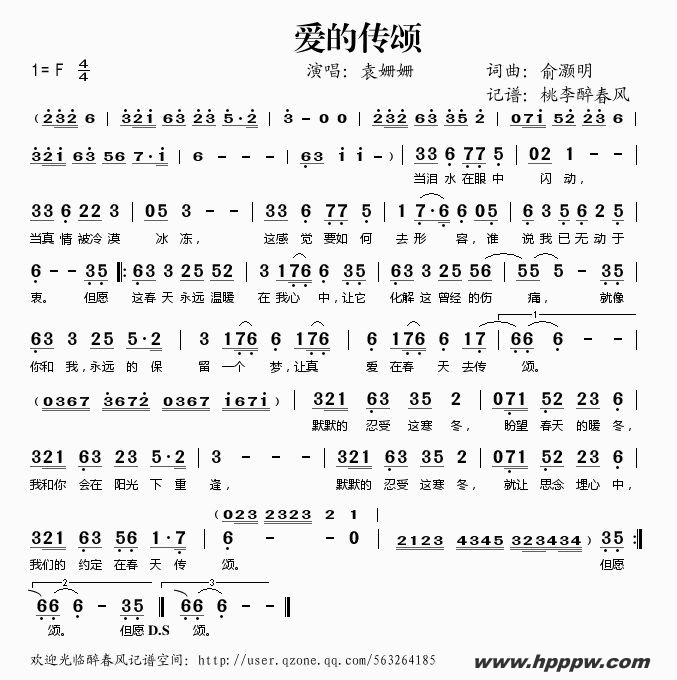 爱的传颂
1= F 4/4 演唱：袁姗姗 词曲：俞灏明
记谱：桃李醉春风
( 232 6 | 321 63 23 5·2 | 3 - 0 0 | 232 63 35 2 | 071 52 23 6 |
321 63 56 7·1 | 6 - - - | 63 1 1 - ) | 33 6 77 5 | 02 1 - - |
当泪 水 在眼 中 闪 动，
33 6 22 3 | 05 3 - - | 33 6 77 5 | 1 7·6 6 05 | 63 5 62 5 |
当真 情 被冷 漠 冰 冻， 这感 觉 要如 何 去 形 容，谁 说 我 已 无动 于
6 - - 35 ‖: 63 3 25 52 | 3 176 6 35 | 63 3 25 56 | 55 5 - 35 |
衷。 但愿 这春 天 永远 温暖 在 我心 中，让它 化解 这 曾经 的伤 痛， 就像
63 3 25 5·2 | 3 176 6 35 | 63 176 6 17 | 1 66 6 - - |
你和 我，永远 的 保 留 一个 梦，让真 爱 在春 天 去传 颂。
( 0367 3672 0367 1671 ) | 321 63 35 2 | 071 52 23 6 |
默默的 忍受 这寒 冬， 盼望 春天 的暖 冬，
321 63 23 5·2 | 3 - - - | 321 63 35 2 | 071 52 23 6 |
我和你 会在 阳光 下 重 逢， 默默的 忍受 这寒 冬， 就让 思念 埋心 中，
( 023 2323 2 1 |
321 63 56 1·7 | 6 - - 0 | 2123 4345 323434 ) 35 :‖
我们的 约定 在春 天 传 颂。 但愿
2 66 6 - 35 ‖ 3 66 6 - - ‖
颂。 但愿 D.S 颂。
欢迎光临醉春风记谱空间：http://user.qzone.qq.com/563264185
www.hpppw.com